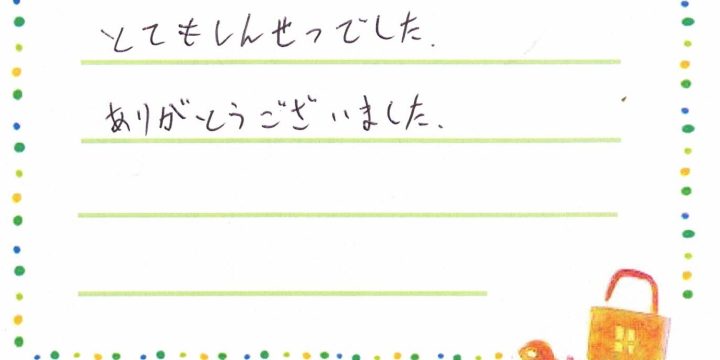 とてもしんせつでした.
ありがとうございました.